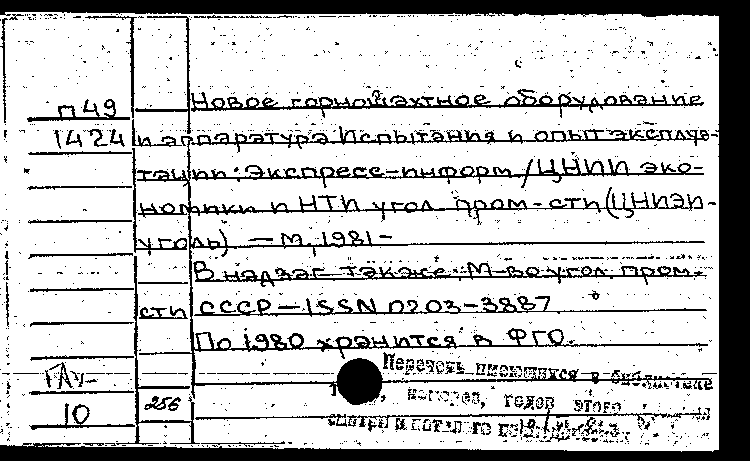 п49
1424
Новое горношахтное оборудование
и аппаратура. Испытания и опыт эксплуа-
тации: Экспресс-информ / ЦНИИ эко-
номики и НТИ угол. пром-сти (ЦНИЭИ-
уголь) — М, 1981 -
В надзаг. также: М-во угол. пром-
сти СССР — ISSN 0203-3887
По 1980 хранится в ФГО.
Перечень имеющихся в библиотеке
номеров, годов этого
смотри
10
256